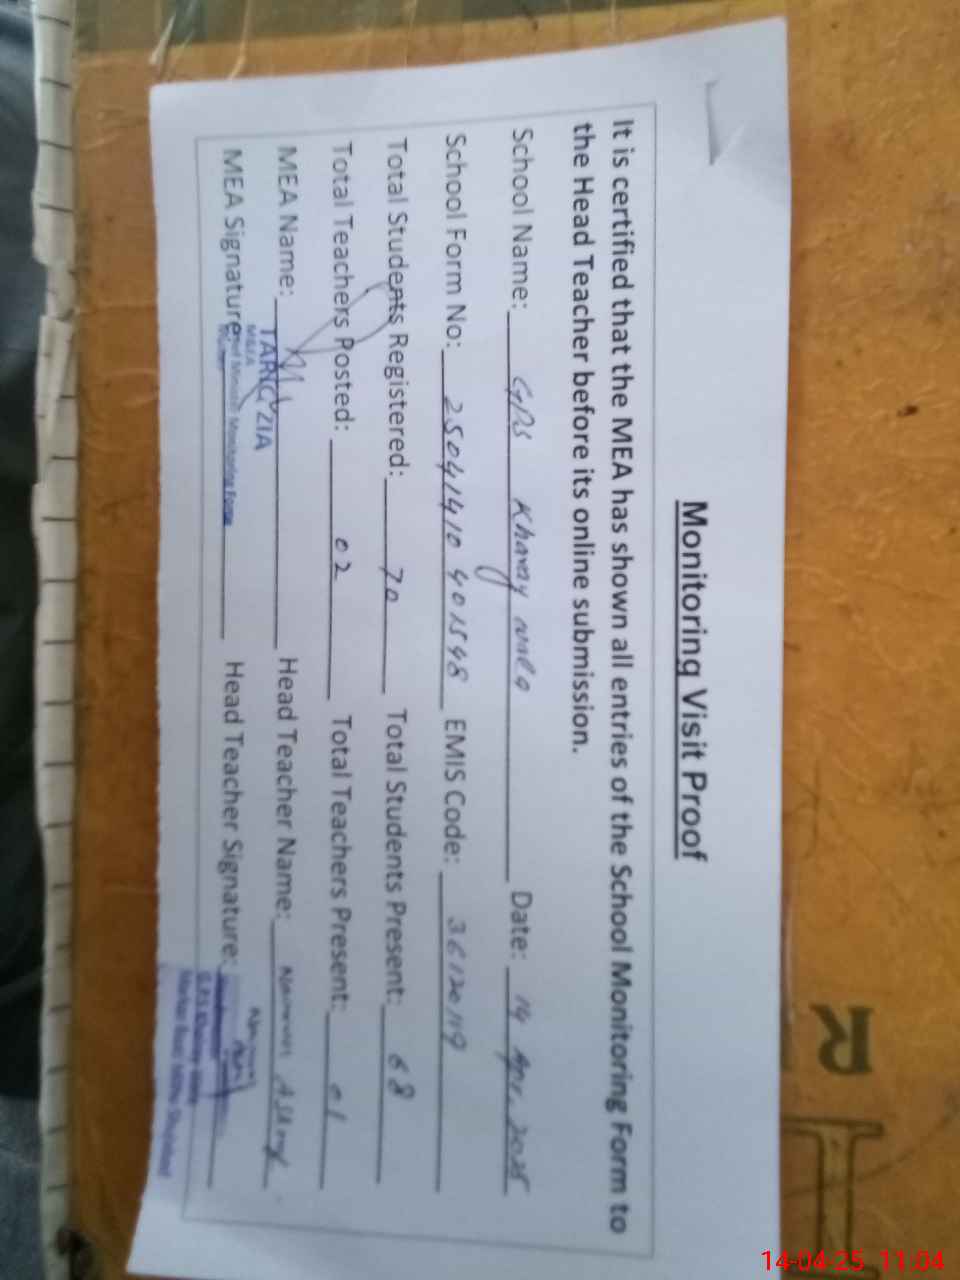 Monitoring Visit Proof
It is certified that the MEA has shown all entries of the School Monitoring Form to
the Head Teacher before its online submission.
School Name: GPS Kharay wala Date: 14 Apr. 2025
School Form No: 2504141040 EMIS Code: 36120119
Total Students Registered: 70 Total Students Present: 68
Total Teachers Posted: 02 Total Teachers Present: 01
MEA Name: TARIQ ZIA Head Teacher Name:
MEA Signature: Head Teacher Signature:
R
14-04-25 11:04